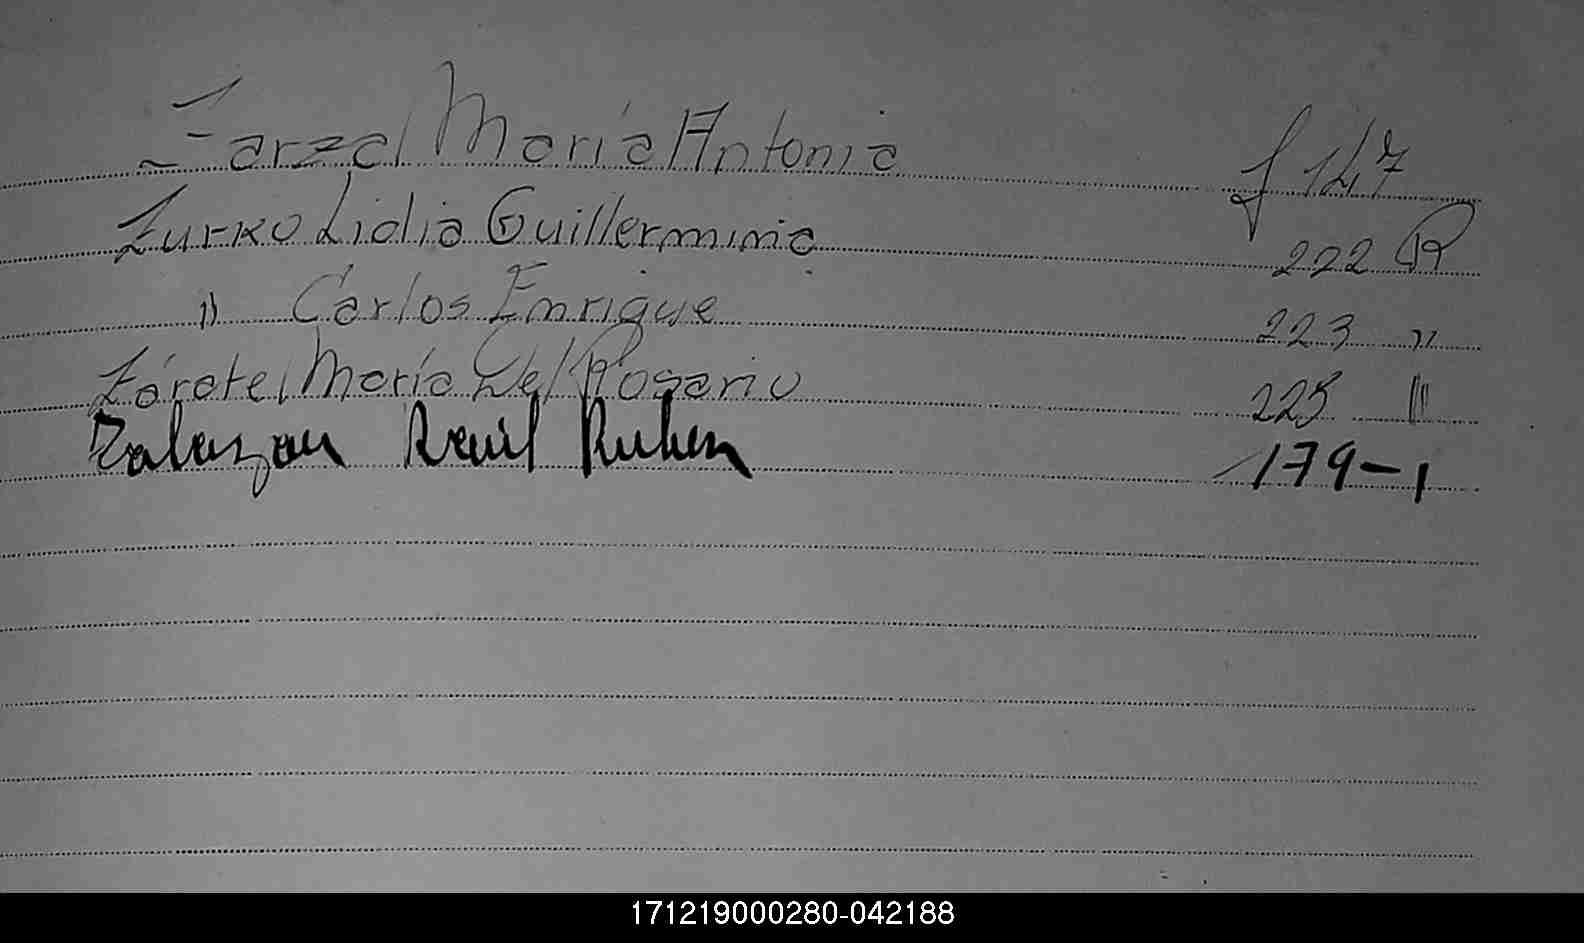 Zarzal María Antonia f 147
Zurko Lidia Guillermina 222 R
" Carlos Enrique 223 "
Zárate María Del Rosario 225 "
Raul Ruben 179-1
171219000280-042188